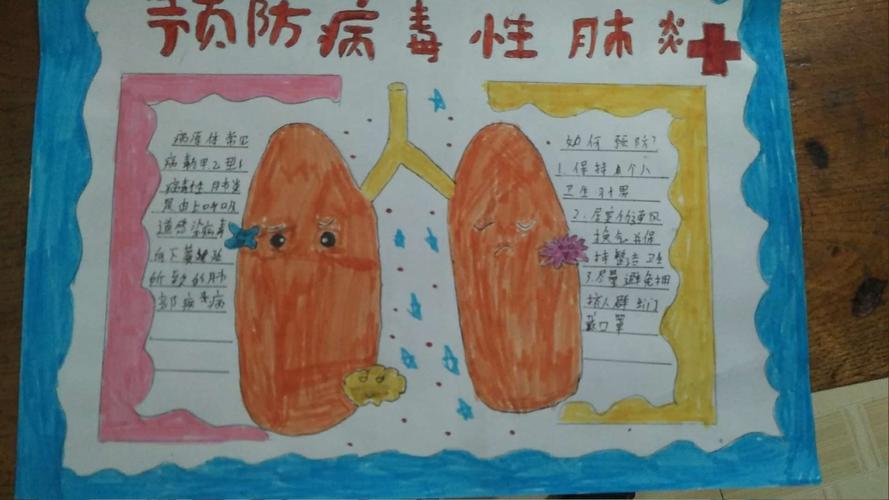 预防病毒性肺炎
病原体常见
病毒甲.乙型
病毒性肺炎
是由上呼吸
道感染病毒
向下蔓延
所致的肺
部疾病
如何预防?
1.保持个人
卫生习惯
2.居室的通风
换气并保
持整洁卫生
3.尽量避免拥
挤人群出门
戴口罩